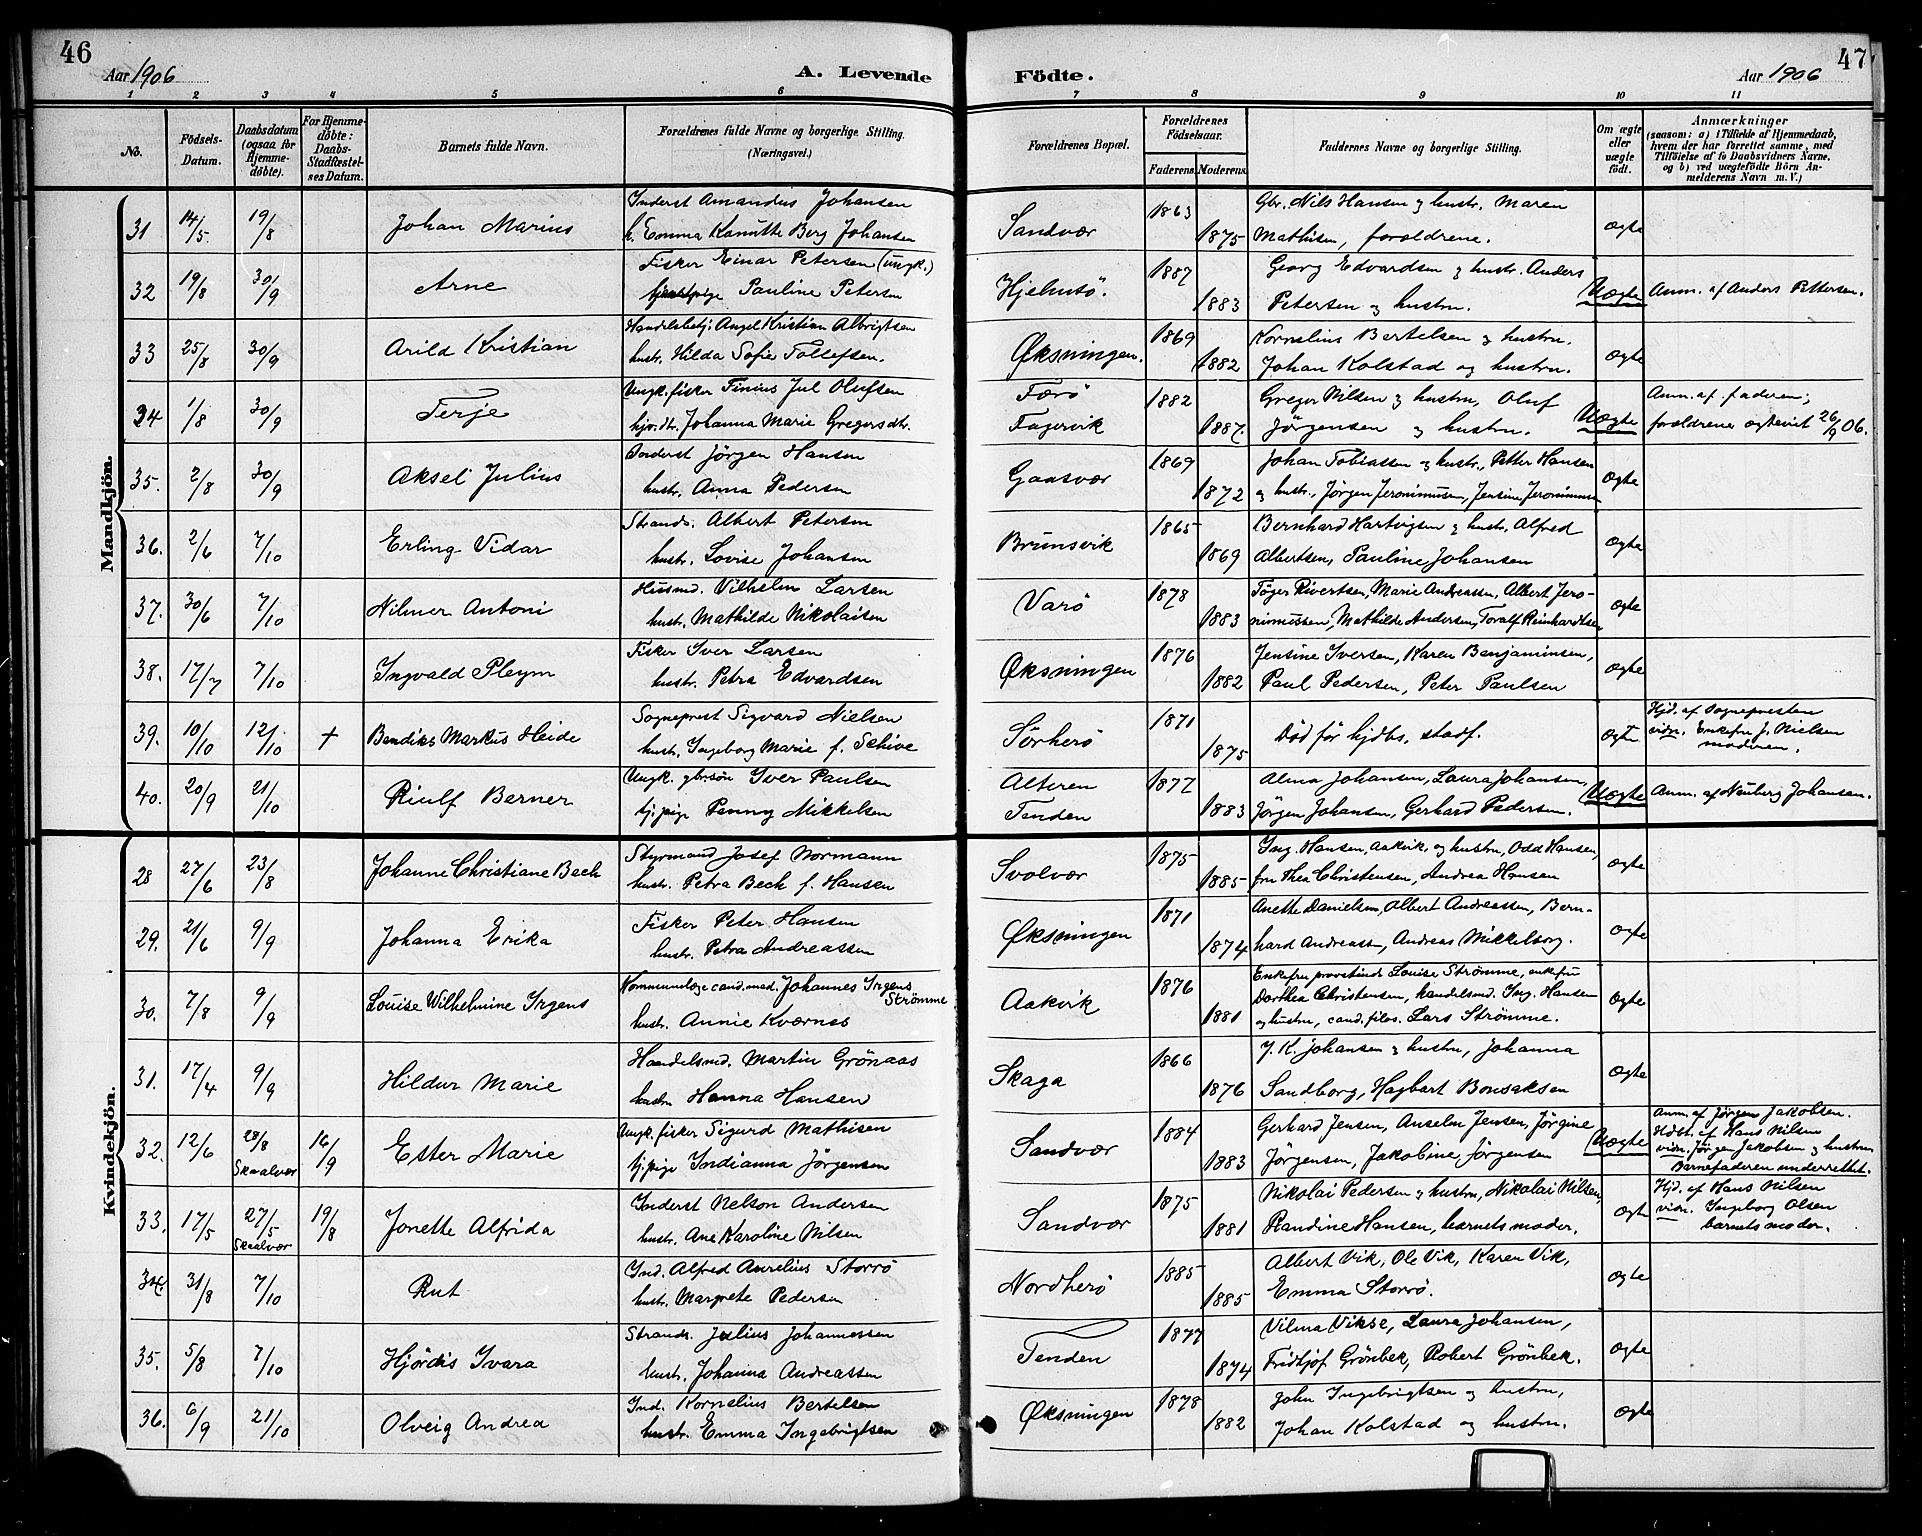 46
Aar 1906
A. Levende
Födte.
Aar 1906
47
1 2 3 4 5 6 7 8 9 10 11
No.
Födsels-Datum.
Daabsdatum (ogsaa for Hjemme-döbte).
For Hjemme-döbte: Daabs-Stadfæstel-ses Datum.
Barnets fulde Navn.
Forældrenes fulde Navne og borgerlige Stilling. (Næringsvei.)
Forældrenes Bopæl.
Forældrenes Födselsaar.
Faderens. Moderens.
Faddernes Navne og borgerlige Stilling.
Om ægte eller uægte födt.
Anmærkninger
(saasom: a) i Tilfælde af Hjemmedaab, hvem der har forrettet samme, med Tilföielse af to Daabsvidners Navne, og b) ved uægtefödte Börn Anmelderens Navn m. V.)
Mandkjön.
31 14/5 19/8 Johan Marius Inderst Amandus Johansen Sandvær 1863 Gbr. Nils Hansen & hustr. Maren ægte
h. Emma Kanutte Berg Johansen 1875 Mathisen, forældrene.
32 19/8 30/9 Arne Fisker Einar Petersen (ungk.) Hjelmsö. 1887 Georg Edvardsen & hustr. Anders Uægte Anm. af Anders Pettersen.
Pauline Petersen 1883 Petersen & hustru.
33 25/8 30/9 Arild Kristian Handelsbetj. Angel Kristian Albrigtsen Øksningen. 1869 Kornelius Bertelsen & hustru. ægte
hustr. Hilda Sofie Tollefsen. 1882 Johan Kolstad og hustru.
34 1/8 30/9 Terje Ungk. fisker Tinius Jul Olufsen Færö 1882 Greger Nilsen & hustru, Oluf Uægte Anm. af faderen;
hjv. dtr. Johanna Marie Gregersdtr. Fagervik 1887. Jörgensen & hustru. forældrene ægteviet 26/9 06.
35. 2/8 30/9 Aksel Julius Inderst Jörgen Hansen Gaasvær 1869 Johan Tobiassen & hustr., Petter Hansen ægte
hustr. Anna Pedersen 1872 & hustr., Jörgen Jeronimusen, Jensine Jeronimusen
36. 2/6 7/10 Erling Vidar Strands. Albert Petersen Brunsvik 1865 Bernhard Hartvigsen & hustr. Alfred ægte
hustr. Lovise Johansen 1869 Albertsen, Pauline Johansen
37. 30/6 7/10 Hilmer Antoni Husmd. Vilhelm Larsen Varö 1878 Töger Rivertsen, Marie Andreassen, Albert Jero- ægte
hustr. Mathilde Nikolaisen 1883 nimussen, Mathilde Andersen, Toralf Reinhardtsen
38. 17/7 7/10 Ingvald Pleym Fisker Iver Larsen Øksningen 1876 Jensine Iversen, Karen Benjaminsen, ægte
hustr. Petra Edvardsen 1882 Paul Pedersen, Peter Paulsen
39. 10/10 12/10 + Bendiks Markus Heide Sogneprest Sigvard Nielsen Sörherö 1871 Död för hjdbs. stadf. ægte Hjd. af Sognepresten
hustr. Ingeborg Marie f. Schive 1875 vidn. Enkefru J. Nielsen
moderen.
40. 20/9 21/10 Riulf Berner Ungk. gbr.sön Iver Paulsen Alteren 1877 Alma Johansen, Laura Johansen, Uægte Anm. af Neuberg Johansen.
tj.pige Penny Mikkelsen Tenden 1883 Jörgen Johansen, Gerhard Pedersen.
Kvindekjön.
28 27/6 23/8 Johanne Christiane Bech Styrmand Josef Normann Svolvær 1875 Ing. Hansen, Aakvik, og hustru, Odd Hansen, ægte
hustr. Petra Bech f. Hansen 1885 fru Thea Christensen, Andrea Hansen
29. 21/6 9/9 Johanna Erika Fisker Peter Hansen Øksningen 1871 Anette Danielsen, Albert Andreassen, Bern- ægte
hustr. Petra Andreassen 1874 hard Andreass, Andreas Mikkelborg.
30. 7/8 9/9 Louise Wilhelmine Irgens Kommunelæge cand. med. Johannes Irgens Strömme Aakvik 1876 Enkefru provstinde Louise Strömme, enkefru ægte
Dorthea Christensen, handelsmd. Ing. Hansen
hustr. Annie Kværnes 1881 og hustru, cand. filos. Lars Strömme.
31. 17/4 9/9 Hildur Marie Haandelsmd. Martin Grönaas Skaga 1866 J. K. Johansen & hustru, Johanna ægte
hustr. Hanna Hansen 1876 Sandborg, Hagbart Bonsaksen
32. 12/6 28/8 Skaalvær 16/9 Ester Marie Ungk. fisker Sigurd Mathisen Sandvær 1884 Gerhard Jensen, Anselm Jensen, Jörgine Uægte Anm. af Jörgen Jakobsen.
tj.pige Indianna Jörgensen 1883 Jörgensen, Jakobine Jörgensen Hdbt. af Hans Nilsen
vidn. Jörgen Jakobsen & hustru
Barnefaderen underrettet.
33. 17/5 27/5 Skaalvær 19/8 Jonette Alfrida Inderst Nelson Andersen Sandvær 1875 Nikolai Pedersen & hustru, Nikolai Nilsen, ægte Hjd. af Hans Nilsen
hustr. Ane Karoline Nilsen 1881 Randine Hansen, barnets moder. vidn. Ingeborg Olsen
barnets moder.
34. 31/8 7/10 Rut Ind. Alfred Aurelius Storrö Nordherö 1885 Albert Vik, Ole Vik, Karen Vik, ægte
hustr. Margrete Pedersen 1885 Emma Storrö.
35. 5/8 7/10 Hjördis Ivara Strands. Julius Johannessen Tenden 1877 Vilma Vikse, Laura Johansen, ægte
hustr. Johanna Andreassen 1874 Fridtjof Grönbek, Robert Grönbek.
36. 6/9 21/10 Olveig Andrea Ind. Kornelius Bertelsen Øksningen 1878 John Ingebrigtsen og hustru, ægte
hustr. Emma Ingebrigtsen 1882 Johan Kolstad og hustru.